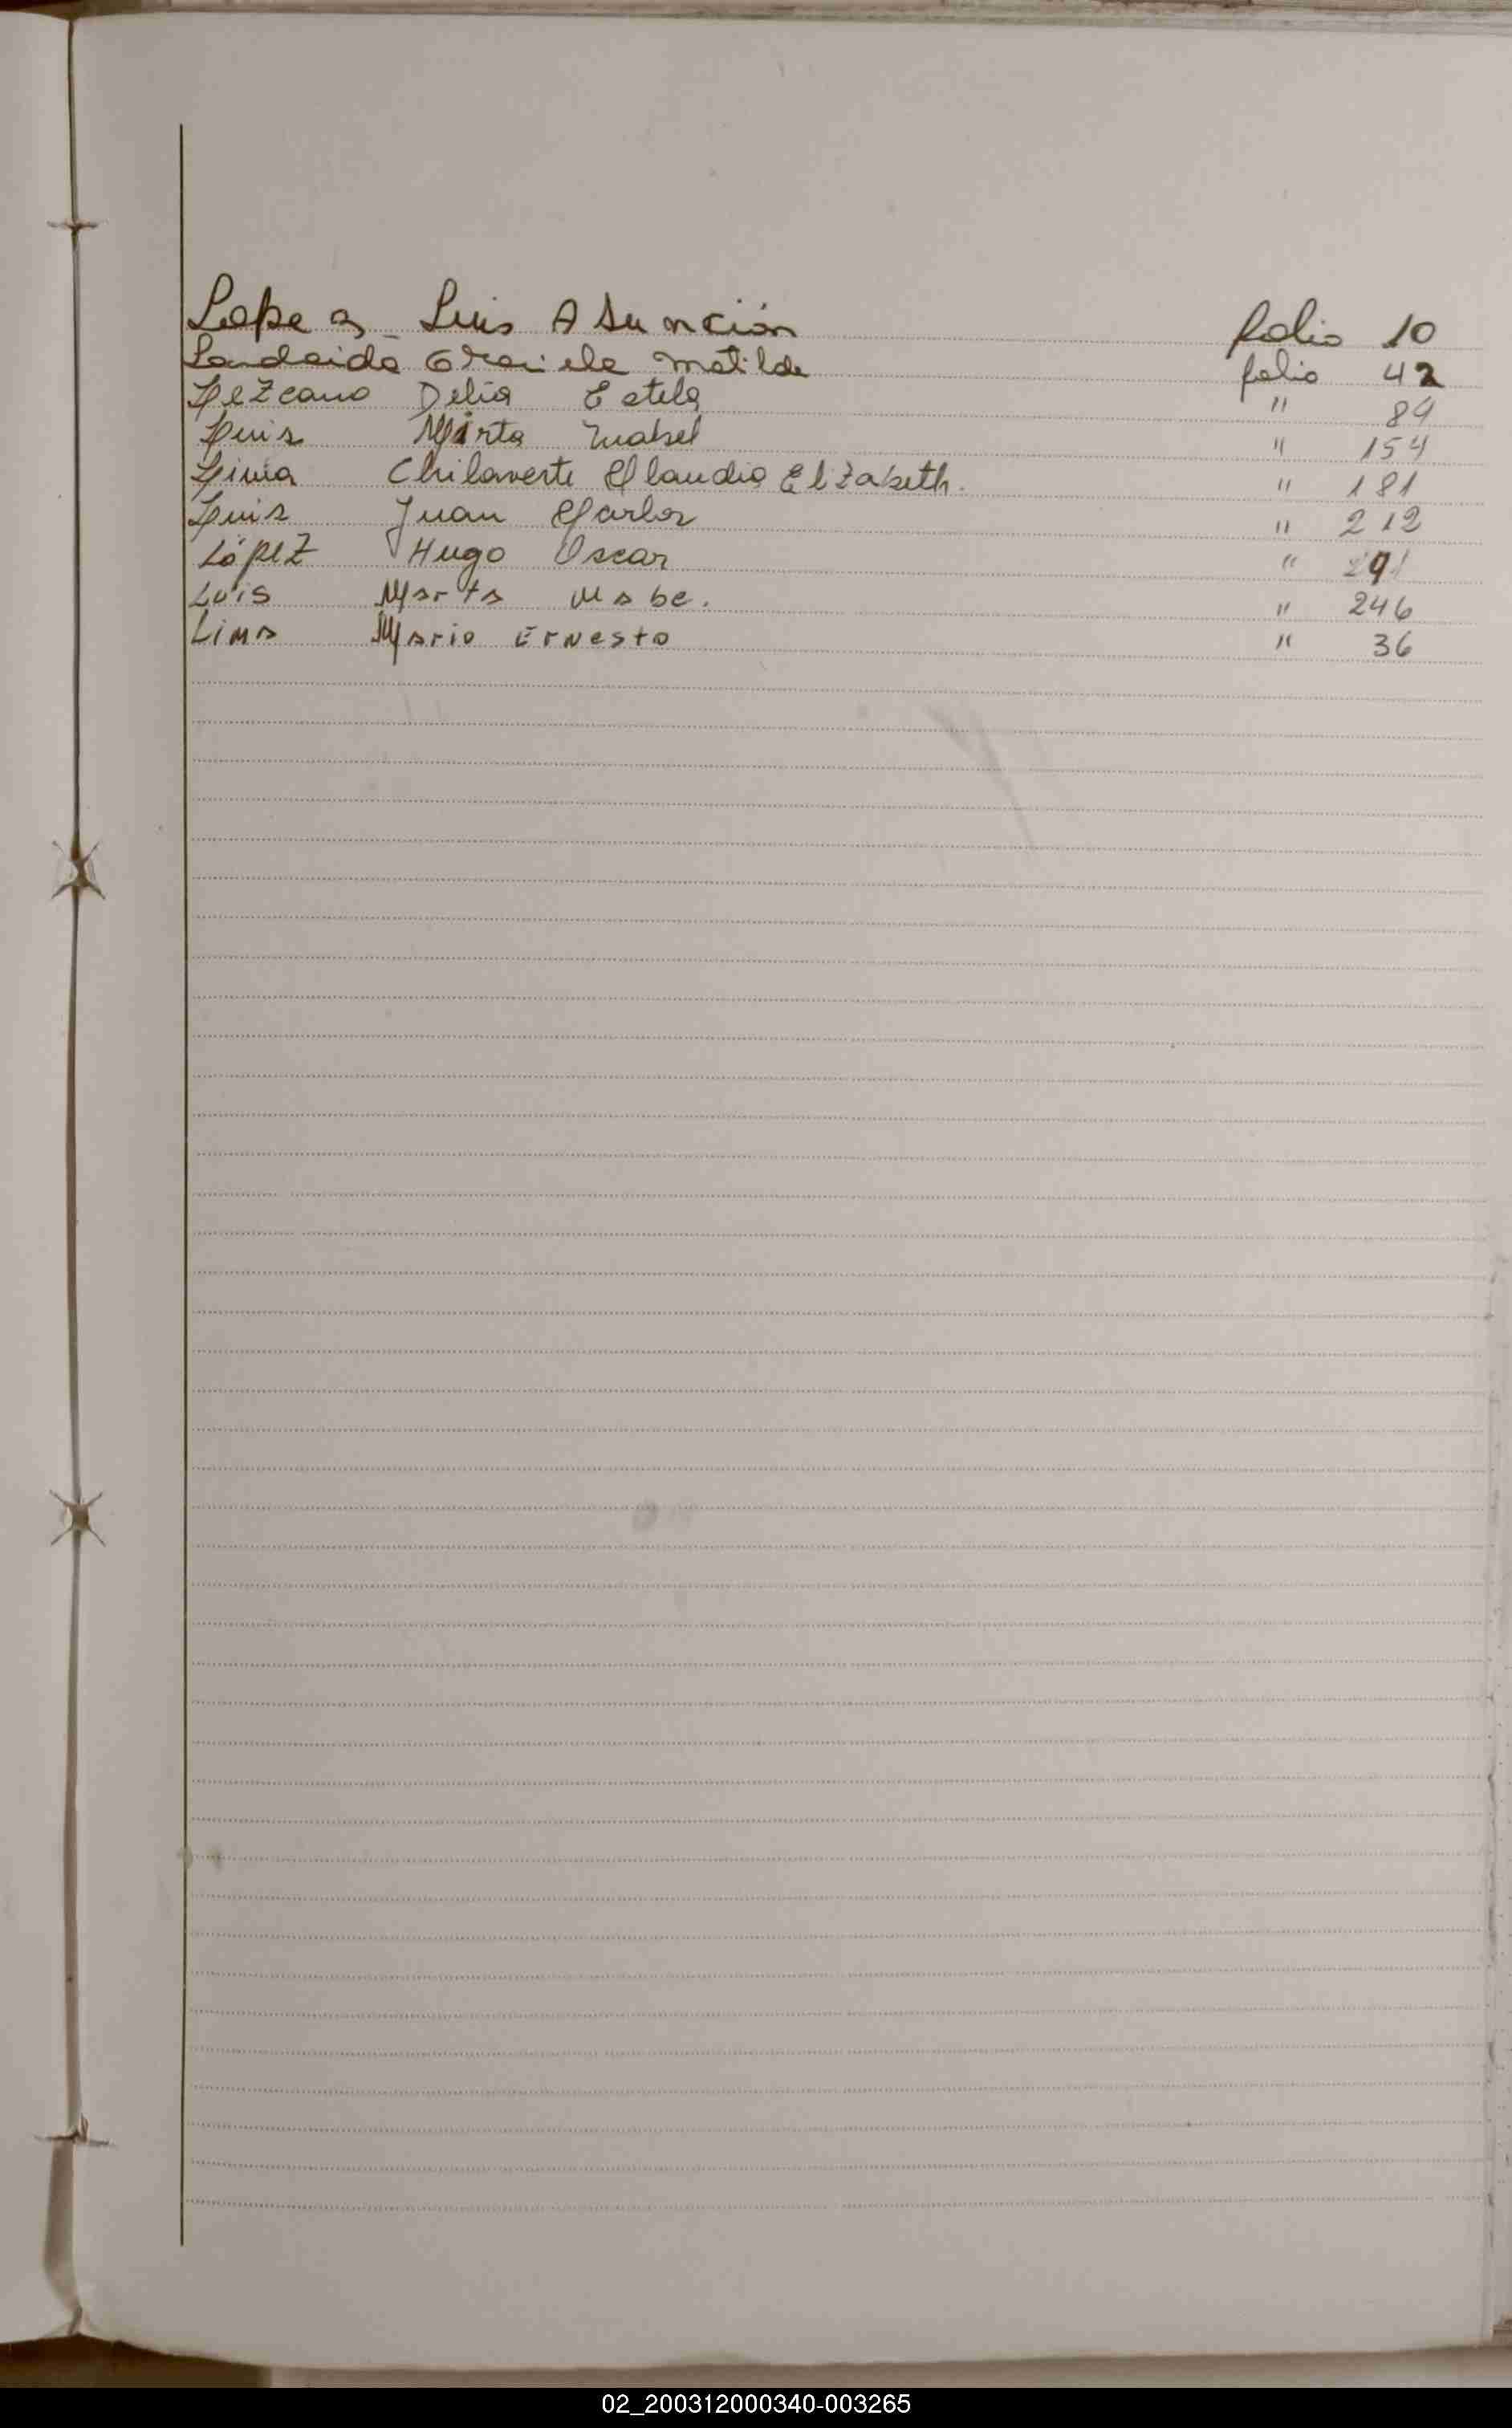 Lopez Luis Asunción folio 10
Landaida Graciela Matilde folio 42
Lezcano Delia Estela " 89
Luis Mirta Isabel " 154
Lima Chilaverte Claudia Elizabeth. " 181
Luis Juan Carlos " 212
López Hugo Oscar "
Luis Marta Mabe. " 246
Lima Mario Ernesto " 36
02_200312000340-003265